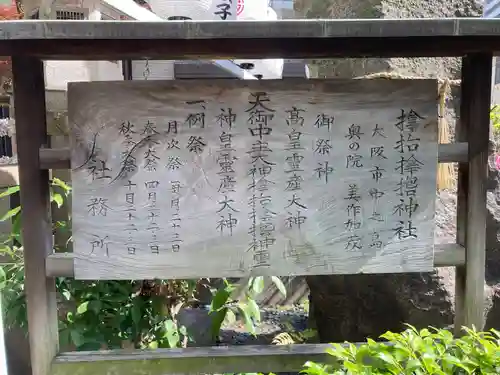 神社
大阪市中之島
奥の院 美作加茂
御祭神
高皇霊産大神
天御中主大神 神霊
神皇霊産大神
一 例祭
月次祭 毎月二十二日
春大祭 四月二十二日
秋大祭 十月二十二日
社務所
子